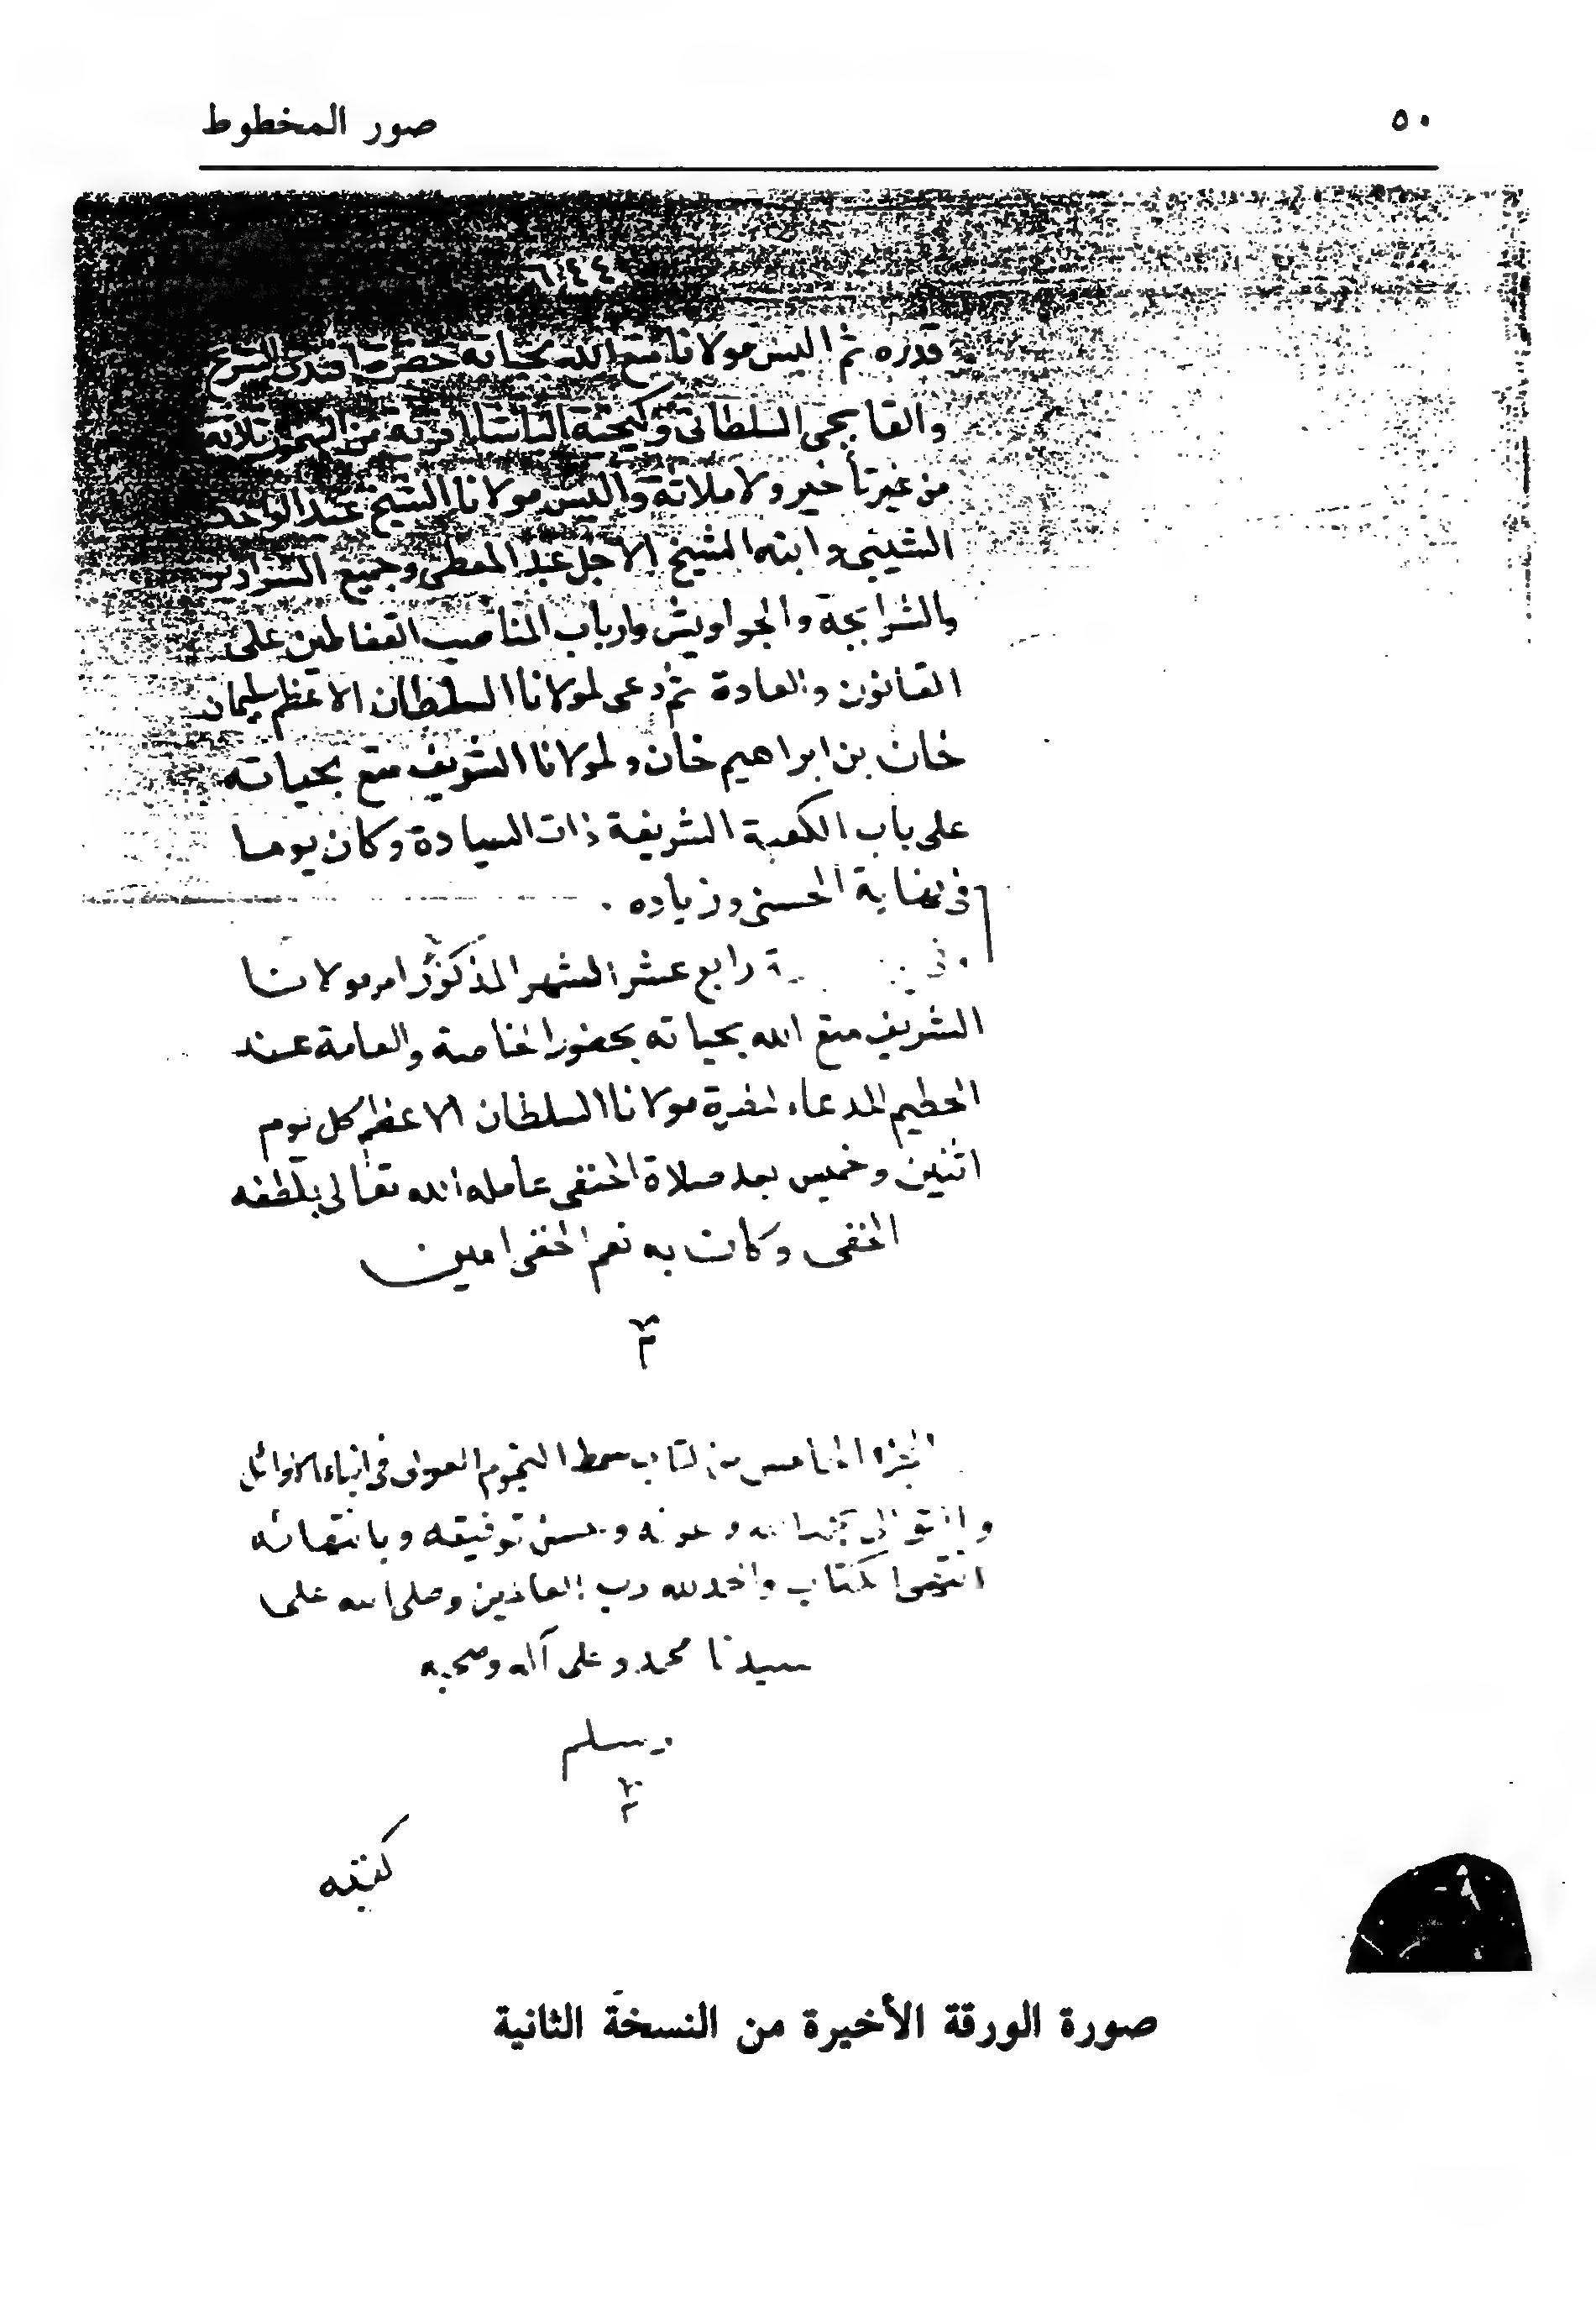 ٥٠
صور المخطوط
٦٤٤
قدره ثم البس مولانا متع الله بحياته حضرت افندى الشرع
والقابجى السلطانى وكيخته الباشا افروة من السمور ثلاثة
من غير تأخير ولا ملاتة والبس مولانا الشيخ عبد الواحد
الشيبى وابنه الشيخ الاجل عبد المعطى وجميع
والجواويش وارباب المناصب القفاطين على
القانون والعادة ثم دعى لمولانا السلطان الاعظم سليمان
خان بن ابراهيم خان ولمولانا الشريف متع بحياته
على باب الكعبة الشريفة ذات السيادة وكان يوما
فى نهاية الحسنى وزياده
وفى رابع عشر الشهر المذكور امر مولانا
الشريف متع الله بحياته بحضور الخاصة والعامة عند
الحطيم الدعاء لحضرة مولانا السلطان الاعظم كل يوم
اثنين وخميس بعد صلاة الحنفى عامله الله تعالى بلطفه
الخفى وكان به نعم الحفى امين
م
الجزء الخامس من كتاب سمط النجوم العوالى فى انباء الاوائل
والتوالى بحمد الله وعونه وحسن توفيقه وبانتهائه
انتهى الكتاب والحمد لله رب العالمين وصلى الله على
سيدنا محمد وعلى آله وصحبه
وسلم
م
كتبته
صورة الورقة الأخيرة من النسخة الثانية